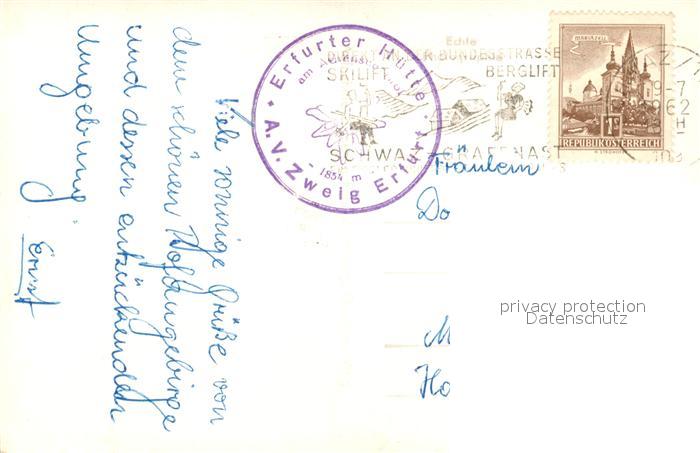 Viele sonnige Grüße von
dem schönen Rofangebirge
und dessen entzückender
Umgebung
Ernst
Erfurter Hütte
am Achensee
1834 m
A.V. Zweig Erfurt
Echte
DIREKT
BUNDESSTRASSE
SKILIFT
BERGLIFT
SCHWA
GRAFENAST
MARIAZELL
1S
REPUBLIK ÖSTERREICH
9-7
1962
Fräulein
Do
M
Ho
privacy protection
Datenschutz